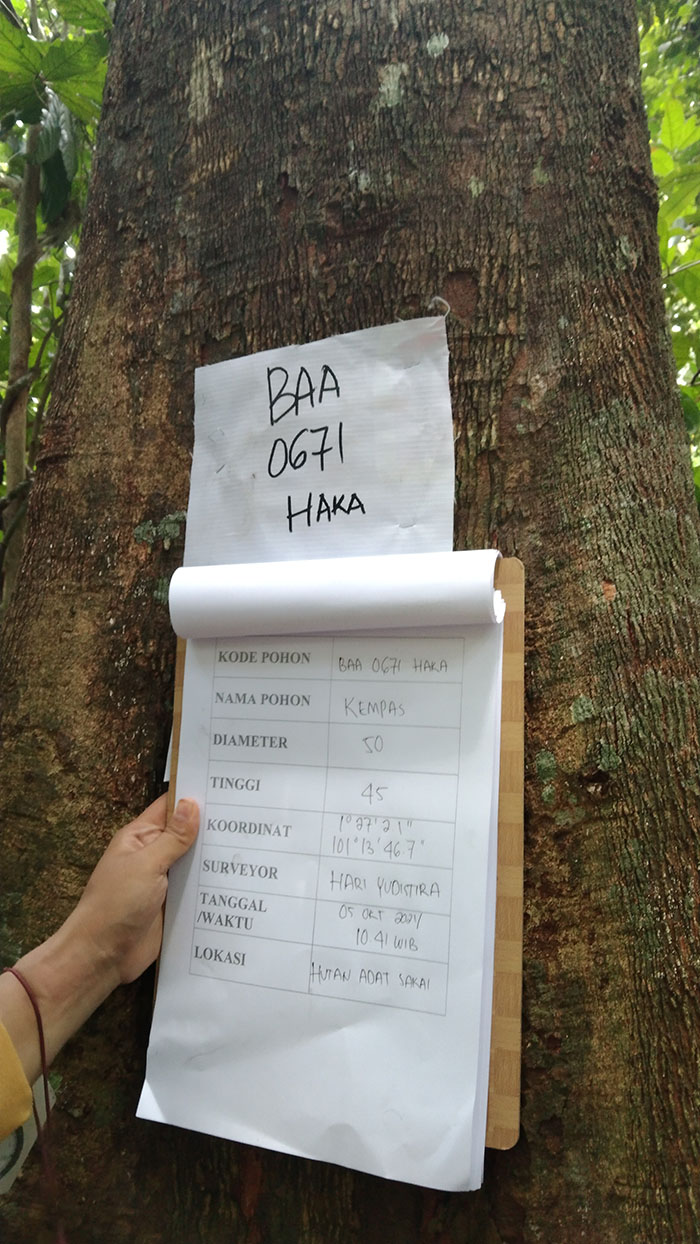 BAA
0671
HAKA
KODE POHON BAA 0671 HAKA
NAMA POHON KEMPAS
DIAMETER 50
TINGGI 45
KOORDINAT 1°27'21"
101°13'46.7"
SURVEYOR HARI YUDISTIRA
TANGGAL 05 OKT 2021/
/WAKTU 10.41 WIB
LOKASI HUTAN ADAT SAKAI